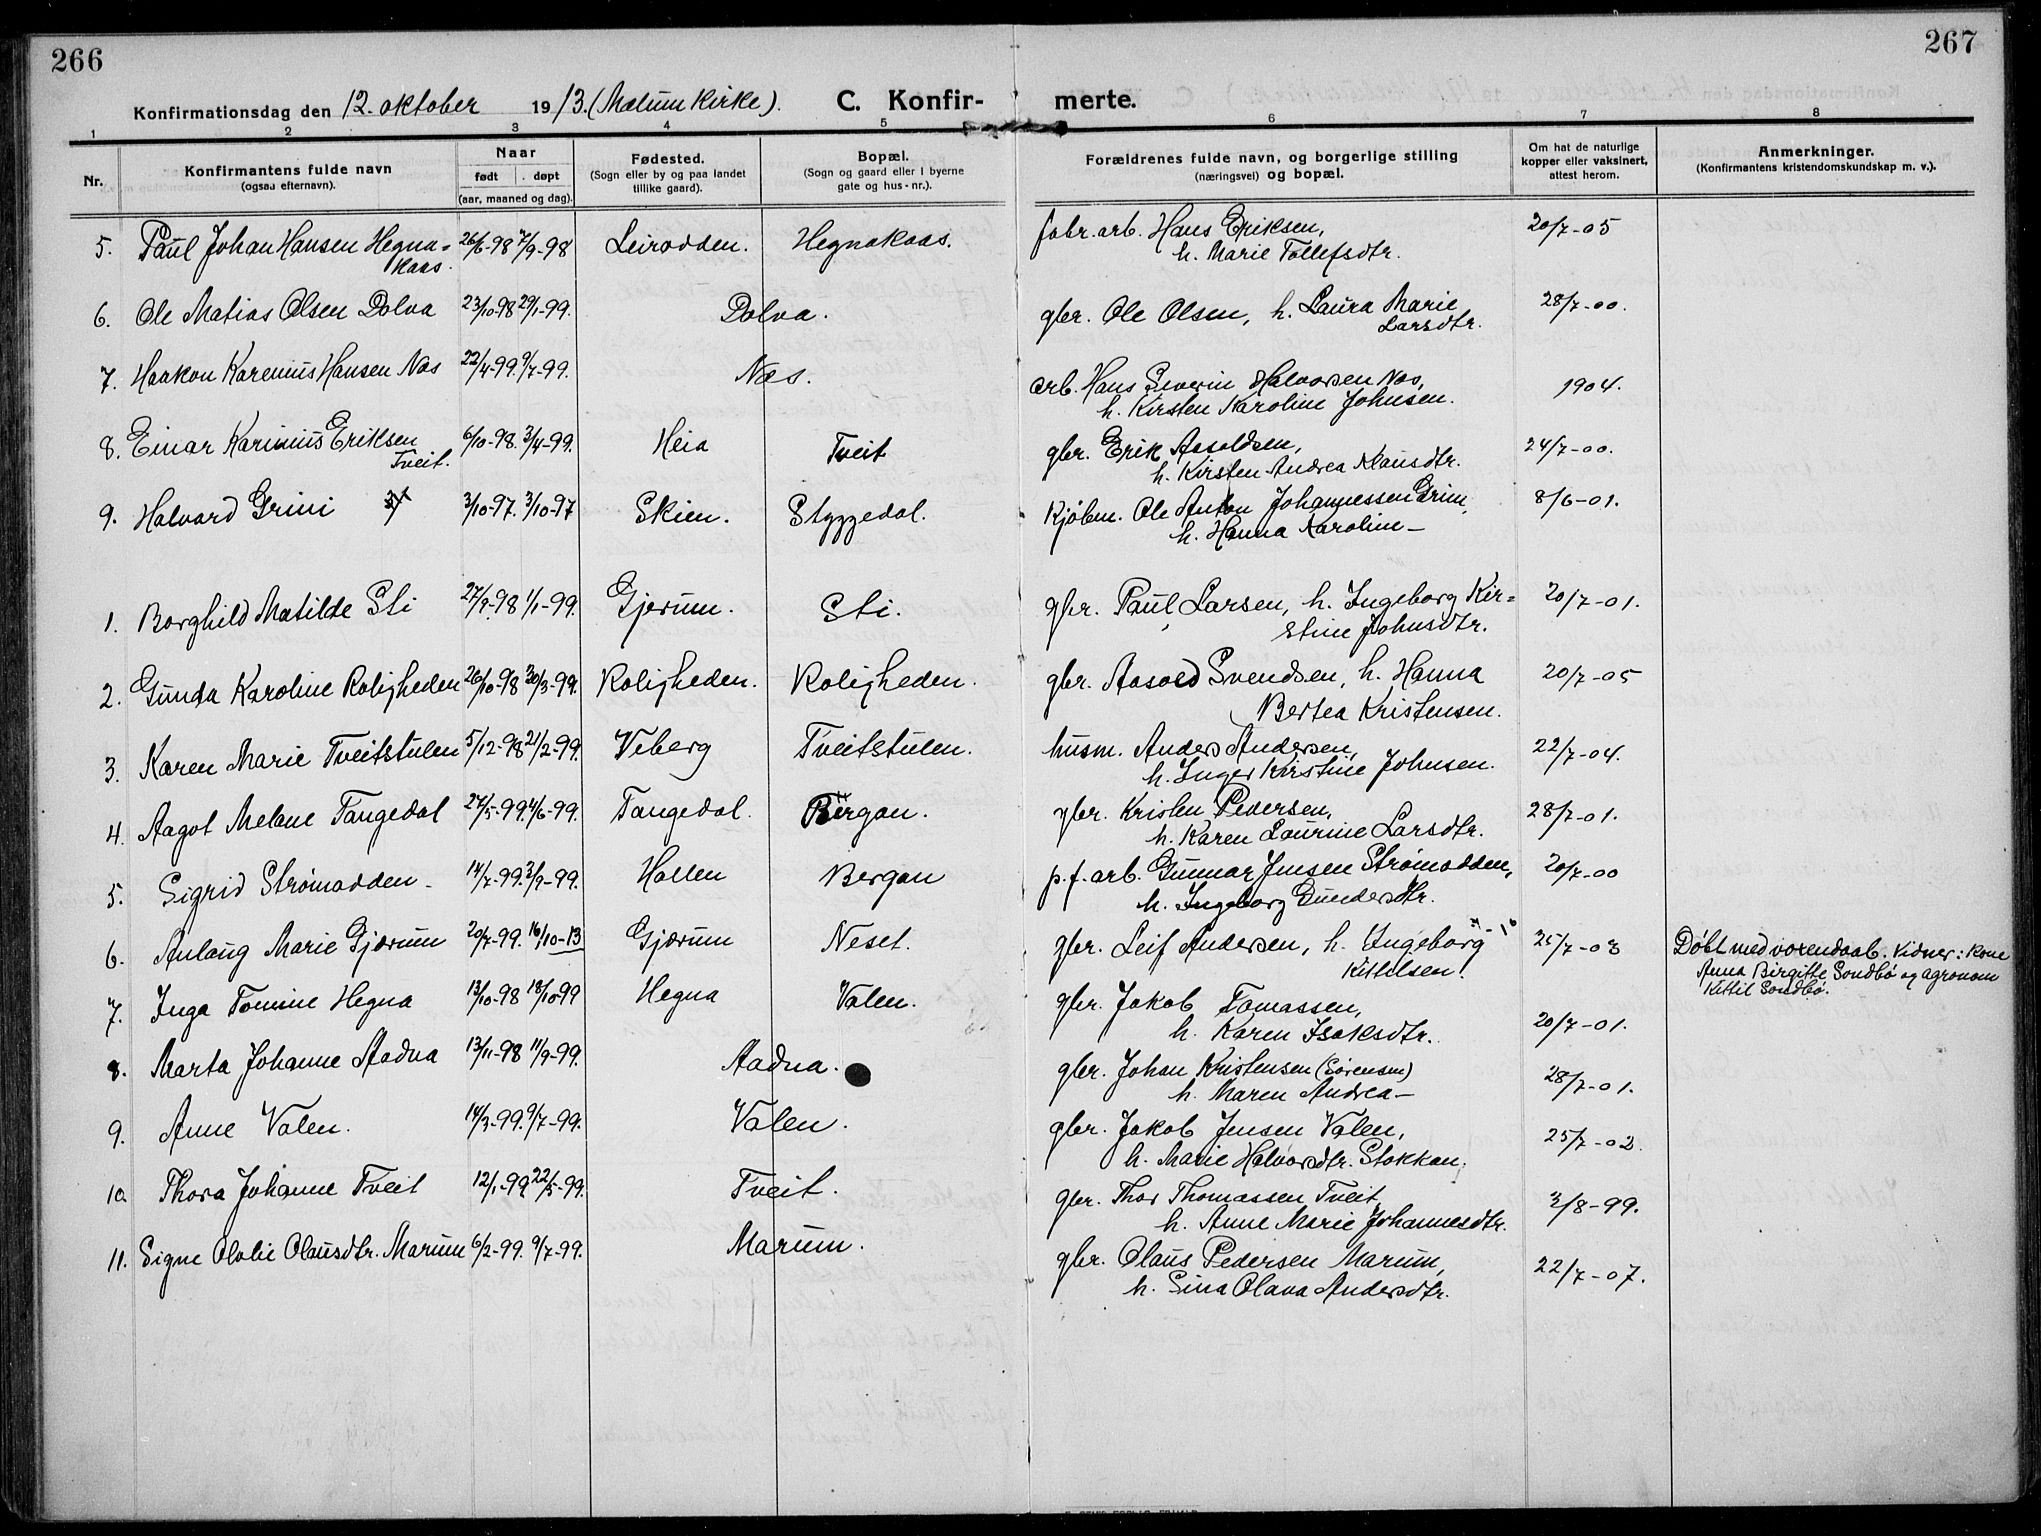 266
267
Konfirmationsdag den 12. oktober 1913. (Mælum kirke). C. Konfir- merte.
1 2 3 4 5 6 7 8
Nr.
Konfirmantens fulde navn
(ogsaa efternavn).
Naar
født døpt
(aar, maaned og dag).
Fødested.
(Sogn eller by og paa landet
tillike gaard).
Bopæl.
(Sogn og gaard eller i byerne
gate og hus-nr.).
Forældrenes fulde navn, og borgerlige stilling
(næringsvei) og bopæl.
Om hat de naturlige
kopper eller vaksinert,
attest herom.
Anmerkninger.
(Konfirmantens kristendomskundskap m. v.).
5. Paul Johan Hansen Hegna= 26/6-98 7/9-98 Leirodden. Hegnakaas. fabr. arb. Hans Eriksen, 20/7-05
kaas. h. Marie Tollefsdtr.
6. Ole Matias Olsen Dolva 23/10-98 29/1-99. Dolva. gbr. Ole Olsen, h. Laura Marie 28/7-00.
Larsdtr.
7. Haakon Karenius Hansen Næs 22/4-99. 9/7-99. Næs. arb. Hans Severin Halvorsen Næs, 1904.
h. Kirsten Karoline Johnsen.
8. Einar Karinius Eriksen 6/10-98. 3/4-99. Heia Tveit gbr. Erik Aasoldsen, 24/7-00.
Tveit. h. Kirsten Andrea Klausdtr.
9. Halvard Grini 3/10-97. 3/10-97 Skien. Styggedal. Kjøbm. Ole Anton Johannessen Grini, 8/6-01.
h. Hanna Karoline —
1. Borghild Matilde Sti 27/9-98 1/1-99. Gjerum. Sti. gbr. Paul Larsen, h. Ingeborg Kir= 20/7-01.
stine Johnsdtr.
2. Gunda Karoline Roligheden 26/10-98 30/3-99. Roligheden. Roligheden. gbr. Aasold Svendsen, h. Hanna 20/7-05
Bertea Kristensen.
3. Karen Marie Tveitstulen 5/12-98 21/2-99. Viberg Tveitstulen. husm. Anders Andersen, 22/7-04.
h. Inger Kirstine Johnsen.
4. Aagot Melane Tangedal 27/5-99. 4/6-99. Tangedal. Bergan. gbr. Kristen Pedersen, 28/7-01.
h. Karen Laurine Larsdtr.
5. Sigrid Strømodden. 14/7-99. 3/9-99. Hollen Bergan p. f. arb. Gunnar Jensen Strømodden, 20/7-00
h. Ingeborg Gundersdtr.
6. Anlaug Marie Gjærum 20/7-99. 16/10-13 Gjærum Neset. gbr. Leif Andersen, h. Ingeborg 25/7-03 Døbt med voxendaab. Vidner: Kone
Kittilsen. Anna Birgitte Sondbø og agronom
Kittil Sondbø.
7. Inga Tomine Hegna 13/10-98 18/10-99 Hegna Valen. gbr. Jakob Tomassen, 20/7-01.
h. Karen Isaksdtr.
8. Marta Johanne Aadna 13/11-98 11/9-99. Aadna. gbr. Johan Kristensen (Sørensen) 28/7-01.
h. Maren Andrea —
9. Anne Valen. 14/3-99. 9/7-99. Valen. gbr. Jakob Jensen Valen, 25/7-02.
h. Marie Halvorsdtr. Stokkan.
10 Thora Johanne Tveit 12/1-99 22/5-99. Tveit. gbr. Thor Thomassen Tveit, 3/8-99.
h. Anne Marie Johannesdtr.
11. Signe Ololie Olausdtr. Marum 6/2-99. 9/7-99. Marum. gbr. Olaus Pedersen Marum, 22/7-07.
h. Sina Olava Andersdtr.